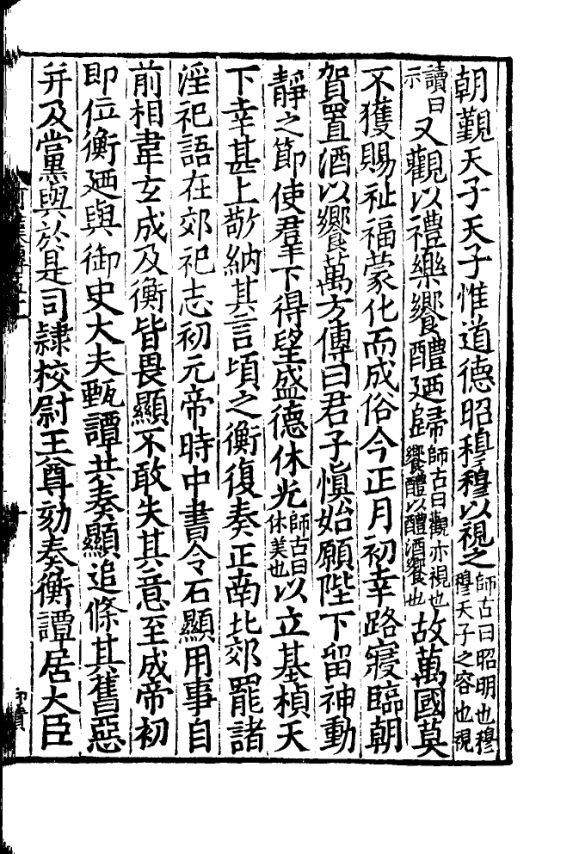 朝覲天子天子惟道德昭穆穆以視之師古曰昭明也穆穆天子之容也視
讀曰示又觀以禮樂饗醴廼歸師古曰觀亦視也饗醴以醴酒饗也故萬國莫
不獲賜祉福蒙化而成俗今正月初幸路寢臨朝
賀置酒以饗萬方傳曰君子愼始願陛下留神動
靜之節使羣下得望盛德休光師古曰休美也以立基楨天
下幸甚上敬納其言頃之衡復奏正南北郊罷諸
淫祀語在郊祀志初元帝時中書令石顯用事自
前相韋玄成及衡皆畏顯不敢失其意至成帝初
即位衡廼與御史大夫甄譚共奏顯追條其舊惡
并及黨與於是司隸校尉王尊劾奏衡譚居大臣